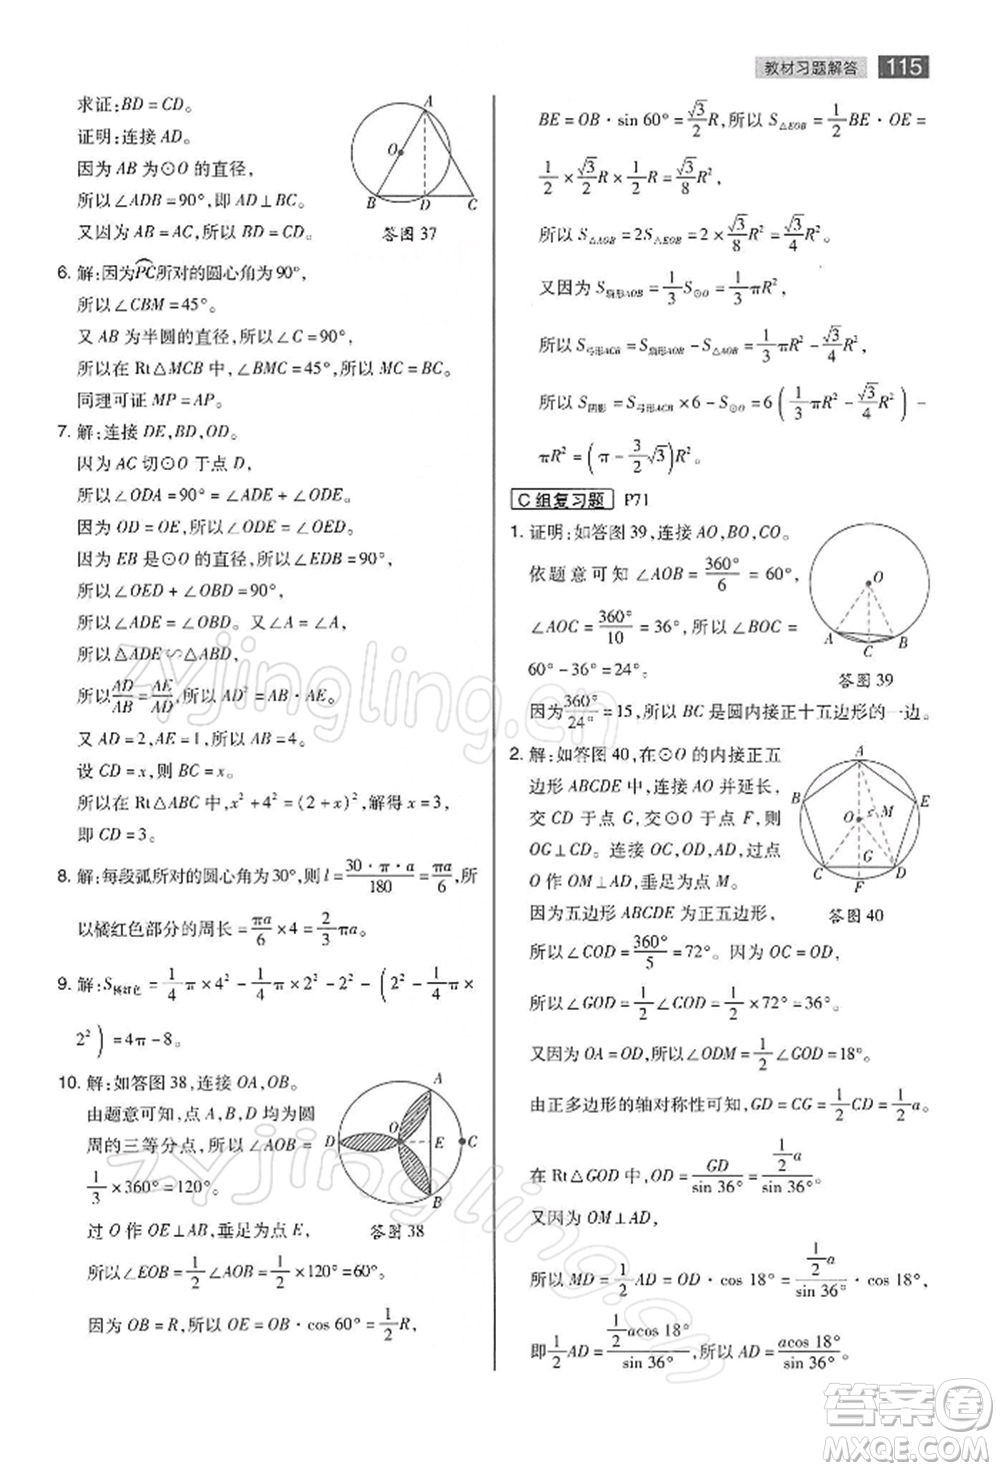 教材习题解答 115
求证:BD=CD。
证明:连接 AD。
因为 AB 为⊙O 的直径,
所以∠ADB=90°,即 AD⊥BC。
又因为 AB=AC,所以 BD=CD。
A
O
B D C
答图 37
6. 解:因为PC所对的圆心角为 90°,
所以∠CBM=45°。
又 AB 为半圆的直径,所以∠C=90°,
所以在 Rt△MCB 中,∠BMC=45°,所以 MC=BC。
同理可证 MP=AP。
7. 解:连接 DE,BD,OD。
因为 AC 切⊙O 于点 D,
所以∠ODA=90°=∠ADE+∠ODE。
因为 OD=OE,所以∠ODE=∠OED。
因为 EB 是⊙O 的直径,所以∠EDB=90°,
所以∠OED+∠OBD=90°,
所以∠ADE=∠OBD。又∠A=∠A,
所以△ADE∽△ABD,
所以AD/AB=AE/AD,所以 AD²=AB·AE。
又 AD=2,AE=1,所以 AB=4。
设 CD=x,则 BC=x。
所以在 Rt△ABC 中,x²+4²=(2+x)²,解得 x=3,
即 CD=3。
8. 解:每段弧所对的圆心角为30°,则 l=30·π·a/180=πa/6,所
以橘红色部分的周长=πa/6×4=2/3πa。
9. 解:S橘红色=1/4π×4²-1/4π×2²-2²-(1/4π×2²-1/2×
2²)=4π-8。
10. 解:如答图 38,连接 OA,OB。
由题意可知,点 A,B,D 均为圆
周的三等分点,所以∠AOB=
1/3×360°=120°。
过 O 作 OE⊥AB,垂足为点 E,
A
D O E C
B
答图 38
所以∠EOB=1/2∠AOB=1/2×120°=60°。
因为 OB=R,所以 OE=OB·cos 60°=1/2R,
BE=OB·sin 60°=√3/2R,所以 S△EOB=1/2BE·OE=
1/2×√3/2R×1/2R=√3/8R²,
所以 S△AOB=2S△EOB=2×√3/8R²=√3/4R²。
又因为 S扇形AOB=1/3S⊙O=1/3πR²,
所以 S弓形ACB=S扇形AOB-S△AOB=1/3πR²-√3/4R²。
所以 S阴影=S弓形ACB×6-S⊙O=6(1/3πR²-√3/4R²)-
πR²=(π-3/2√3)R²。
C 组复习题 P71
1. 证明:如答图 39,连接 AO,BO,CO。
依题意可知∠AOB=360°/6=60°,
∠AOC=360°/10=36°,所以∠BOC=
60°-36°=24°。
O
A C B
答图 39
因为360°/24°=15,所以 BC 是圆内接正十五边形的一边。
2. 解:如答图 40,在⊙O 的内接正五
边形 ABCDE 中,连接 AO 并延长,
交 CD 于点 G,交⊙O 于点 F,则
OG⊥CD。连接 OC,OD,AD,过点
O 作 OM⊥AD,垂足为点 M。
因为五边形 ABCDE 为正五边形,
A
B E
O M
G
C F D
答图 40
所以∠COD=360°/5=72°。因为 OC=OD,
所以∠GOD=1/2∠COD=1/2×72°=36°。
又因为 OA=OD,所以∠ODM=1/2∠GOD=18°。
由正多边形的轴对称性可知,GD=CG=1/2CD=1/2a。
在 Rt△GOD 中,OD=GD/sin 36°=1/2a/sin 36°。
又因为 OM⊥AD,
所以 MD=1/2AD=OD·cos 18°=1/2a/sin 36°·cos 18°,
即1/2AD=1/2acos 18°/sin 36°,所以 AD=acos 18°/sin 36°。
zyjingling.cn
zyjingling.cn
答案圈
MXQE.COM